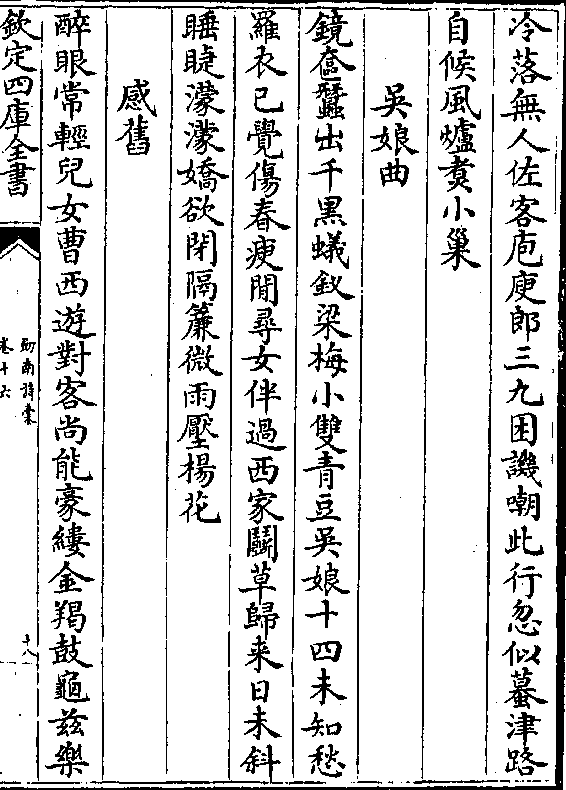 冷落無人佐客庖庾郎三九困譏嘲此行忽似蟇津路
自候風爐煑小巢
吳娘曲
鏡奩蠶出千黑蟻釵梁梅小雙青豆吳娘十四未知愁
羅衣已覺傷春瘦閒尋女伴過西家鬭草歸来日未斜
睡睫濛濛嬌欲閉隔簾微雨壓楊花
感舊
醉眼常輕兒女曹西遊對客尚能豪縷金羯鼓龜兹樂
欽定四庫全書
劍南詩稾
卷十六
十八